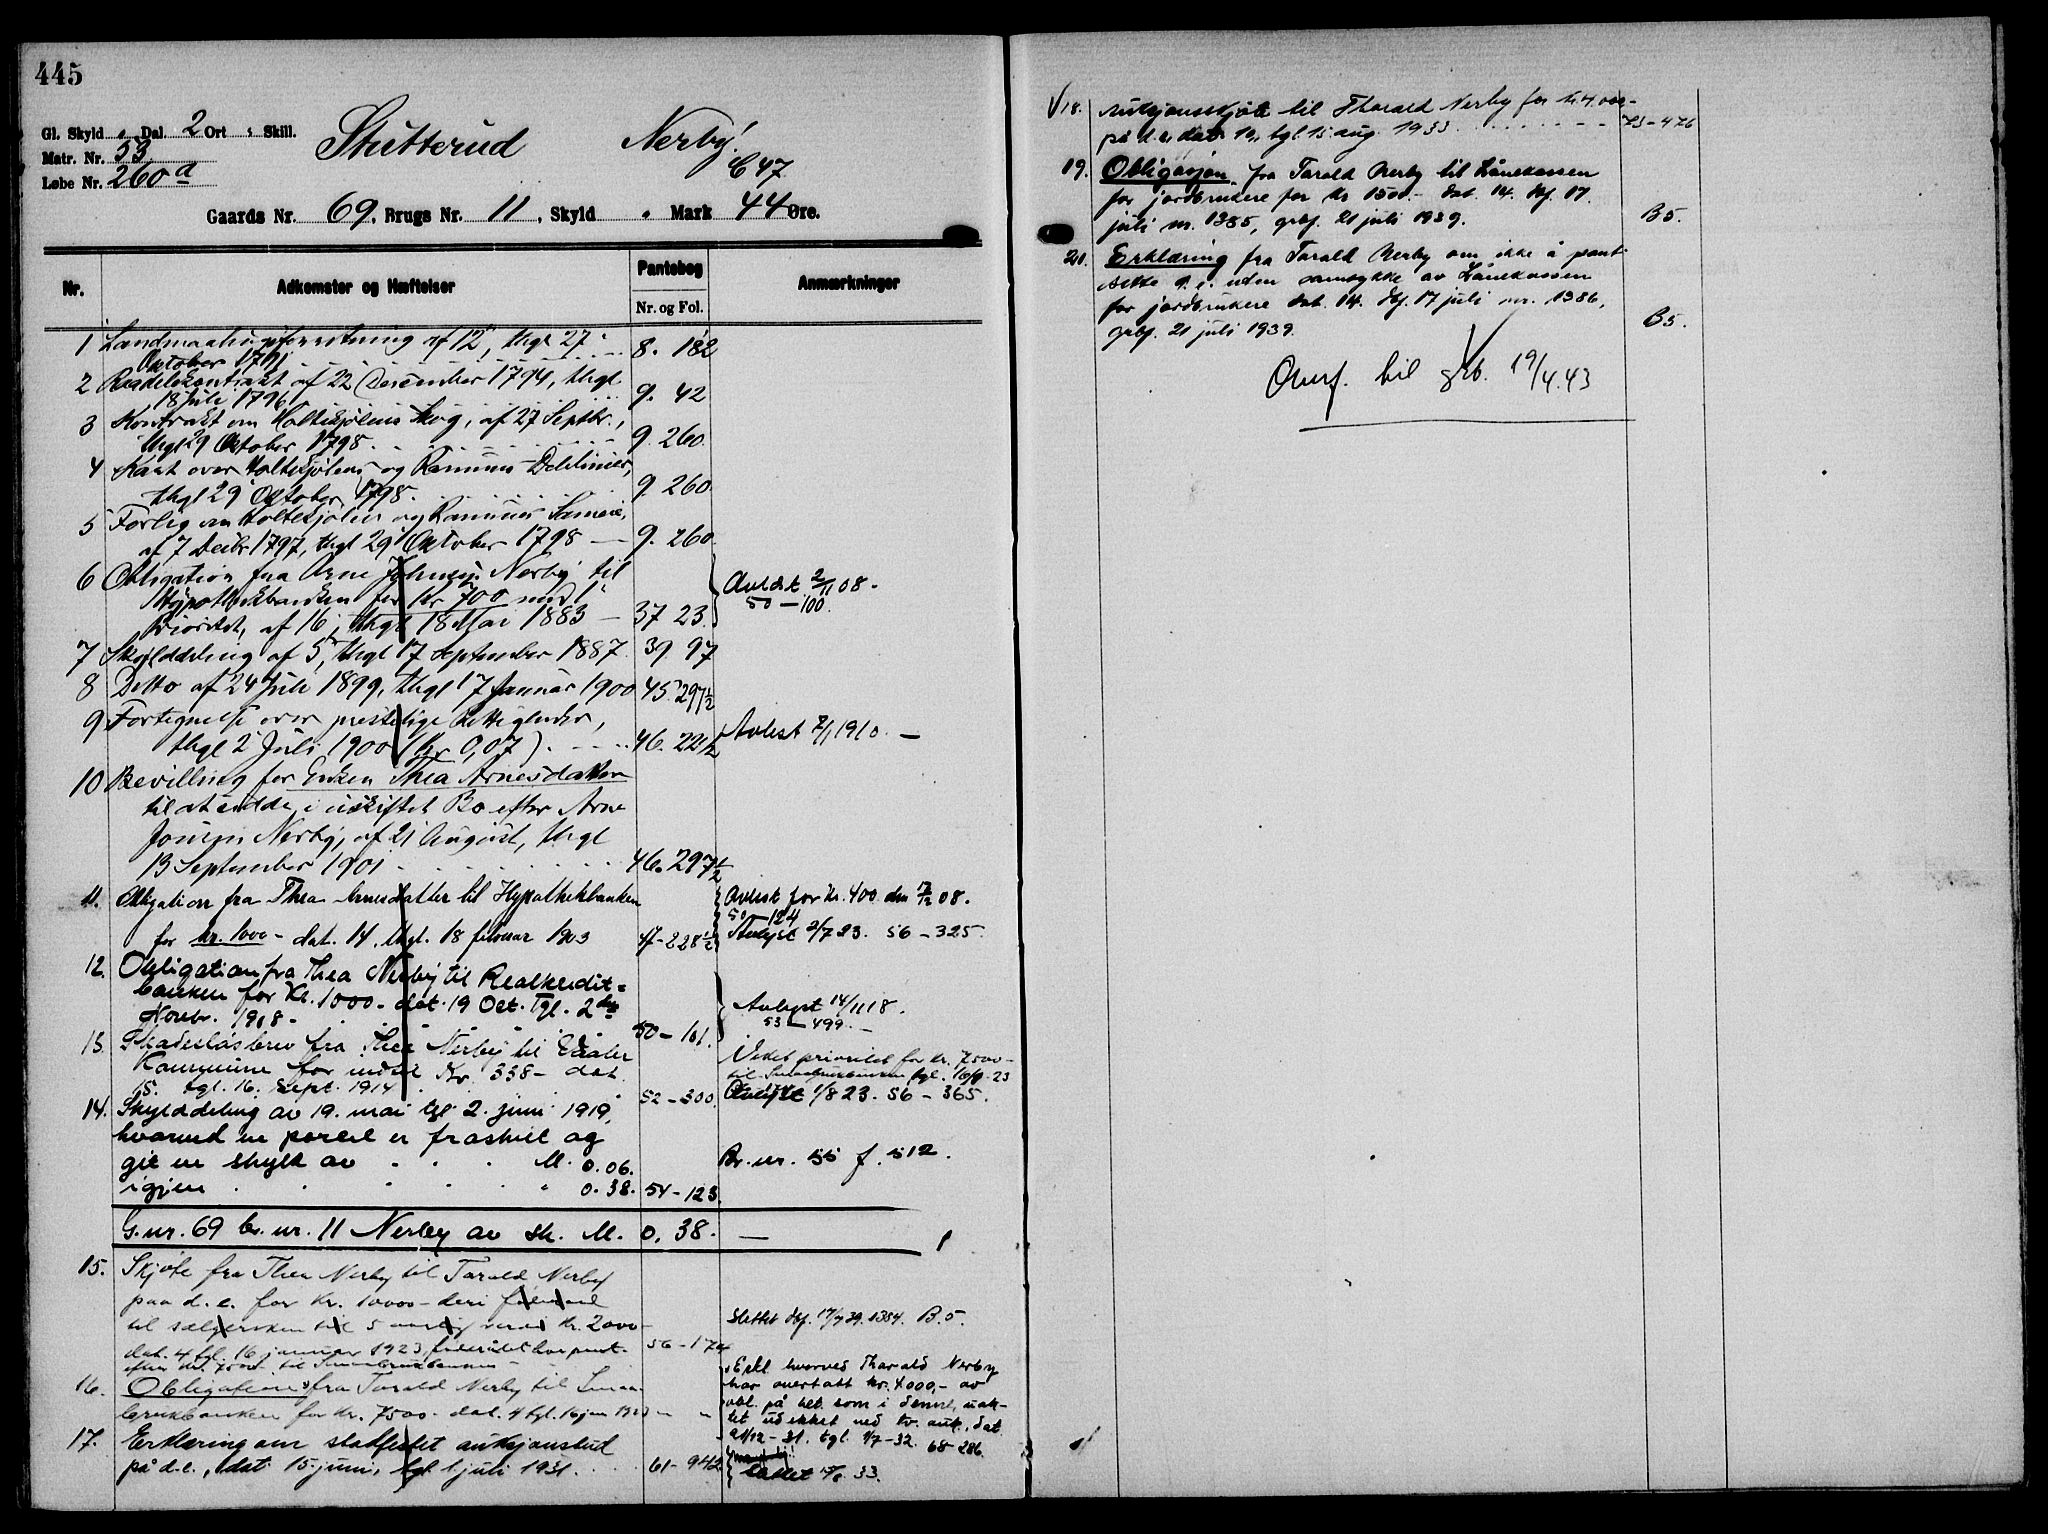 445
Gl. Skyld " Dal. 2 Ort " Skill.
Matr. Nr. 53
Løbe Nr. 260 d
Stutterud Nerby!
C47
Gaards Nr. 69, Brugs Nr. 11, Skyld " Mark 44 Øre.
Nr. Adkomster og Hæftelser Pantebog Anmærkninger
Nr. og Fol.
1 Landmaalingsforretning af 12, thgl 27
Oktober 1791 8. 182
2 af 22 December 1794, thgl
18 Juli 1796 9. 42
3 Kontrakt om Holtesjølens Skog, af 27 Septbr.,
thgl 29 Oktober 1798. 9. 260.
4 Kart over Holtesjølens og Rasmus Delelinier,
thgl 29 Oktober 1798. 9. 260.
5 Forlig om Holtesjølen og
af 7 Decbr 1797, thgl 29 Oktober 1798 — 9. 260.
6 Obligation fra Arne Johnsen Nerby til
Hypothekbanken for Kr 700 med 1ste
Prioritet, af 16, thgl 18 Mai 1883 — 37 23.
Avlæst 2/1 08.
50 — 100.
7 Skylddeling af 5, thgl 17 September 1887. 39. 97
8 Ditto af 24 Juli 1899, thgl 17 Januar 1900 45. 297½
9 Fortegnelse over prestelige Rettigheder,
thgl 2 Juli 1900 (Kr 0,07). 46. 22½
Avlest 7/1 1910. —
10 Bevilling for Enken Thea Arnesdatter
til at sidde i uskiftet Bo efter Arne
Jonsen Nerby, af 21 August, thgl
13 September 1901 46. 297½
11. Obligation fra Thea Arnesdatter til Hypothekbanken
for kr. 1000 - dat. 14, thgl. 18 februar 1903 47-228½
Avlest for kr. 400 den 17/2 08.
50 — 124
Avlyst 2/7 23. 56 - 325.
12. Obligation fra Thea Nerby til Realkredit=
banken for Kr. 1000 - dat. 19 Oct. Tgl. 2den
Novbr. 1908 - 50 - 101.
Avlyst 14/11 18.
53 — 499. —
13. Skadesløsbrev fra Thea Nerby til Vaaler
Kommune for indtil Kr. 338 - dat.
15. tgl. 16. Sept. 1914 52 - 300.
Veket prioritet for kr. 7500 -
til Smaabrukbanken tgl. 16/1 - 23
Avlyst 1/8 23. 56 - 365.
14. Skylddeling av 19. mai tgl. 2. juni 1919,
hvorved en parcel er fraskilt og
git en skyld av M. 0.06.
igjen " 0.38. 54 - 123.
Br. nr. 55 f. 512.
G. nr. 69 br. nr. 11 Nerby av sk. M. 0. 38. —
15. Skjøte fra Thea Nerby til Tarald Nerby
paa d. e. for Kr. 10000 - deri føderaad
til sælgersken til 5 aarlig værd kr. 2000 -
dat. 4 tgl. 16 januar 1923, føderådet har prort.
efter kr. 7500 til Smaabrukbanken 56 - 174
Slettet dbf. 17/7 39. 1384. B. 5.
16. Obligation fra Tarald Nerby til Smaa-
brukbanken for Kr. 7500 - dat. 4 tgl. 16 jan 1923 — "
Erkl. hvorved Tharald Nerby
har overtatt kr. 4000,- av
obl. på bet. som i denne, uak-
tet udekket ved tv. auk., dat.
21/12 - 31. tgl. 1/7 - 32. 68 - 286.
17. Erklæring om stadfestet auksjonsbud
på d. e., dat. 15. juni, tgl. 1 juli 1931. 61 - 942.
slettet 15/8 33.
18. Auksjonsskjøte til Tharald Nerby for kr. 4.000 -
på d. e. dat. 10, tgl. 15. aug. 1933 73 - 476
19. Obligasjon fra Tarald Nerby til Lånekassen
for jordbrukere for kr 1500.- dat. 14. dbf. 17.
juli nr. 1385, grbf. 21 juli 1939. B 5.
20. Erklæring fra Tarald Nerby om ikke å pant-
sette d. e. uden samtykke av Lånekassen
for jordbrukere dat. 14. dbf. 17 juli nr. 1386,
grbf. 21 juli 1939. B 5.
Overf. til grb. 19/4. 43